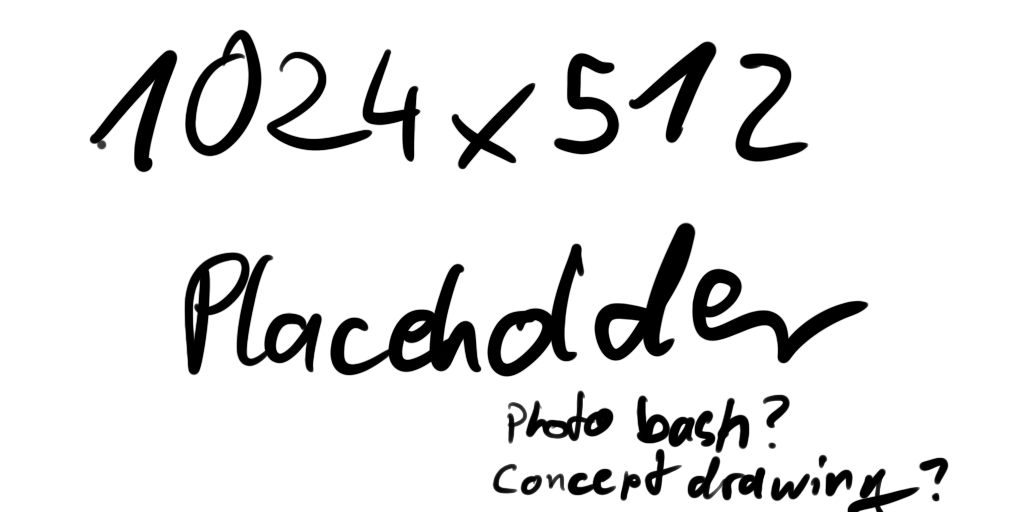 1024x512
Placeholder
Photo bash?
Concept drawing?